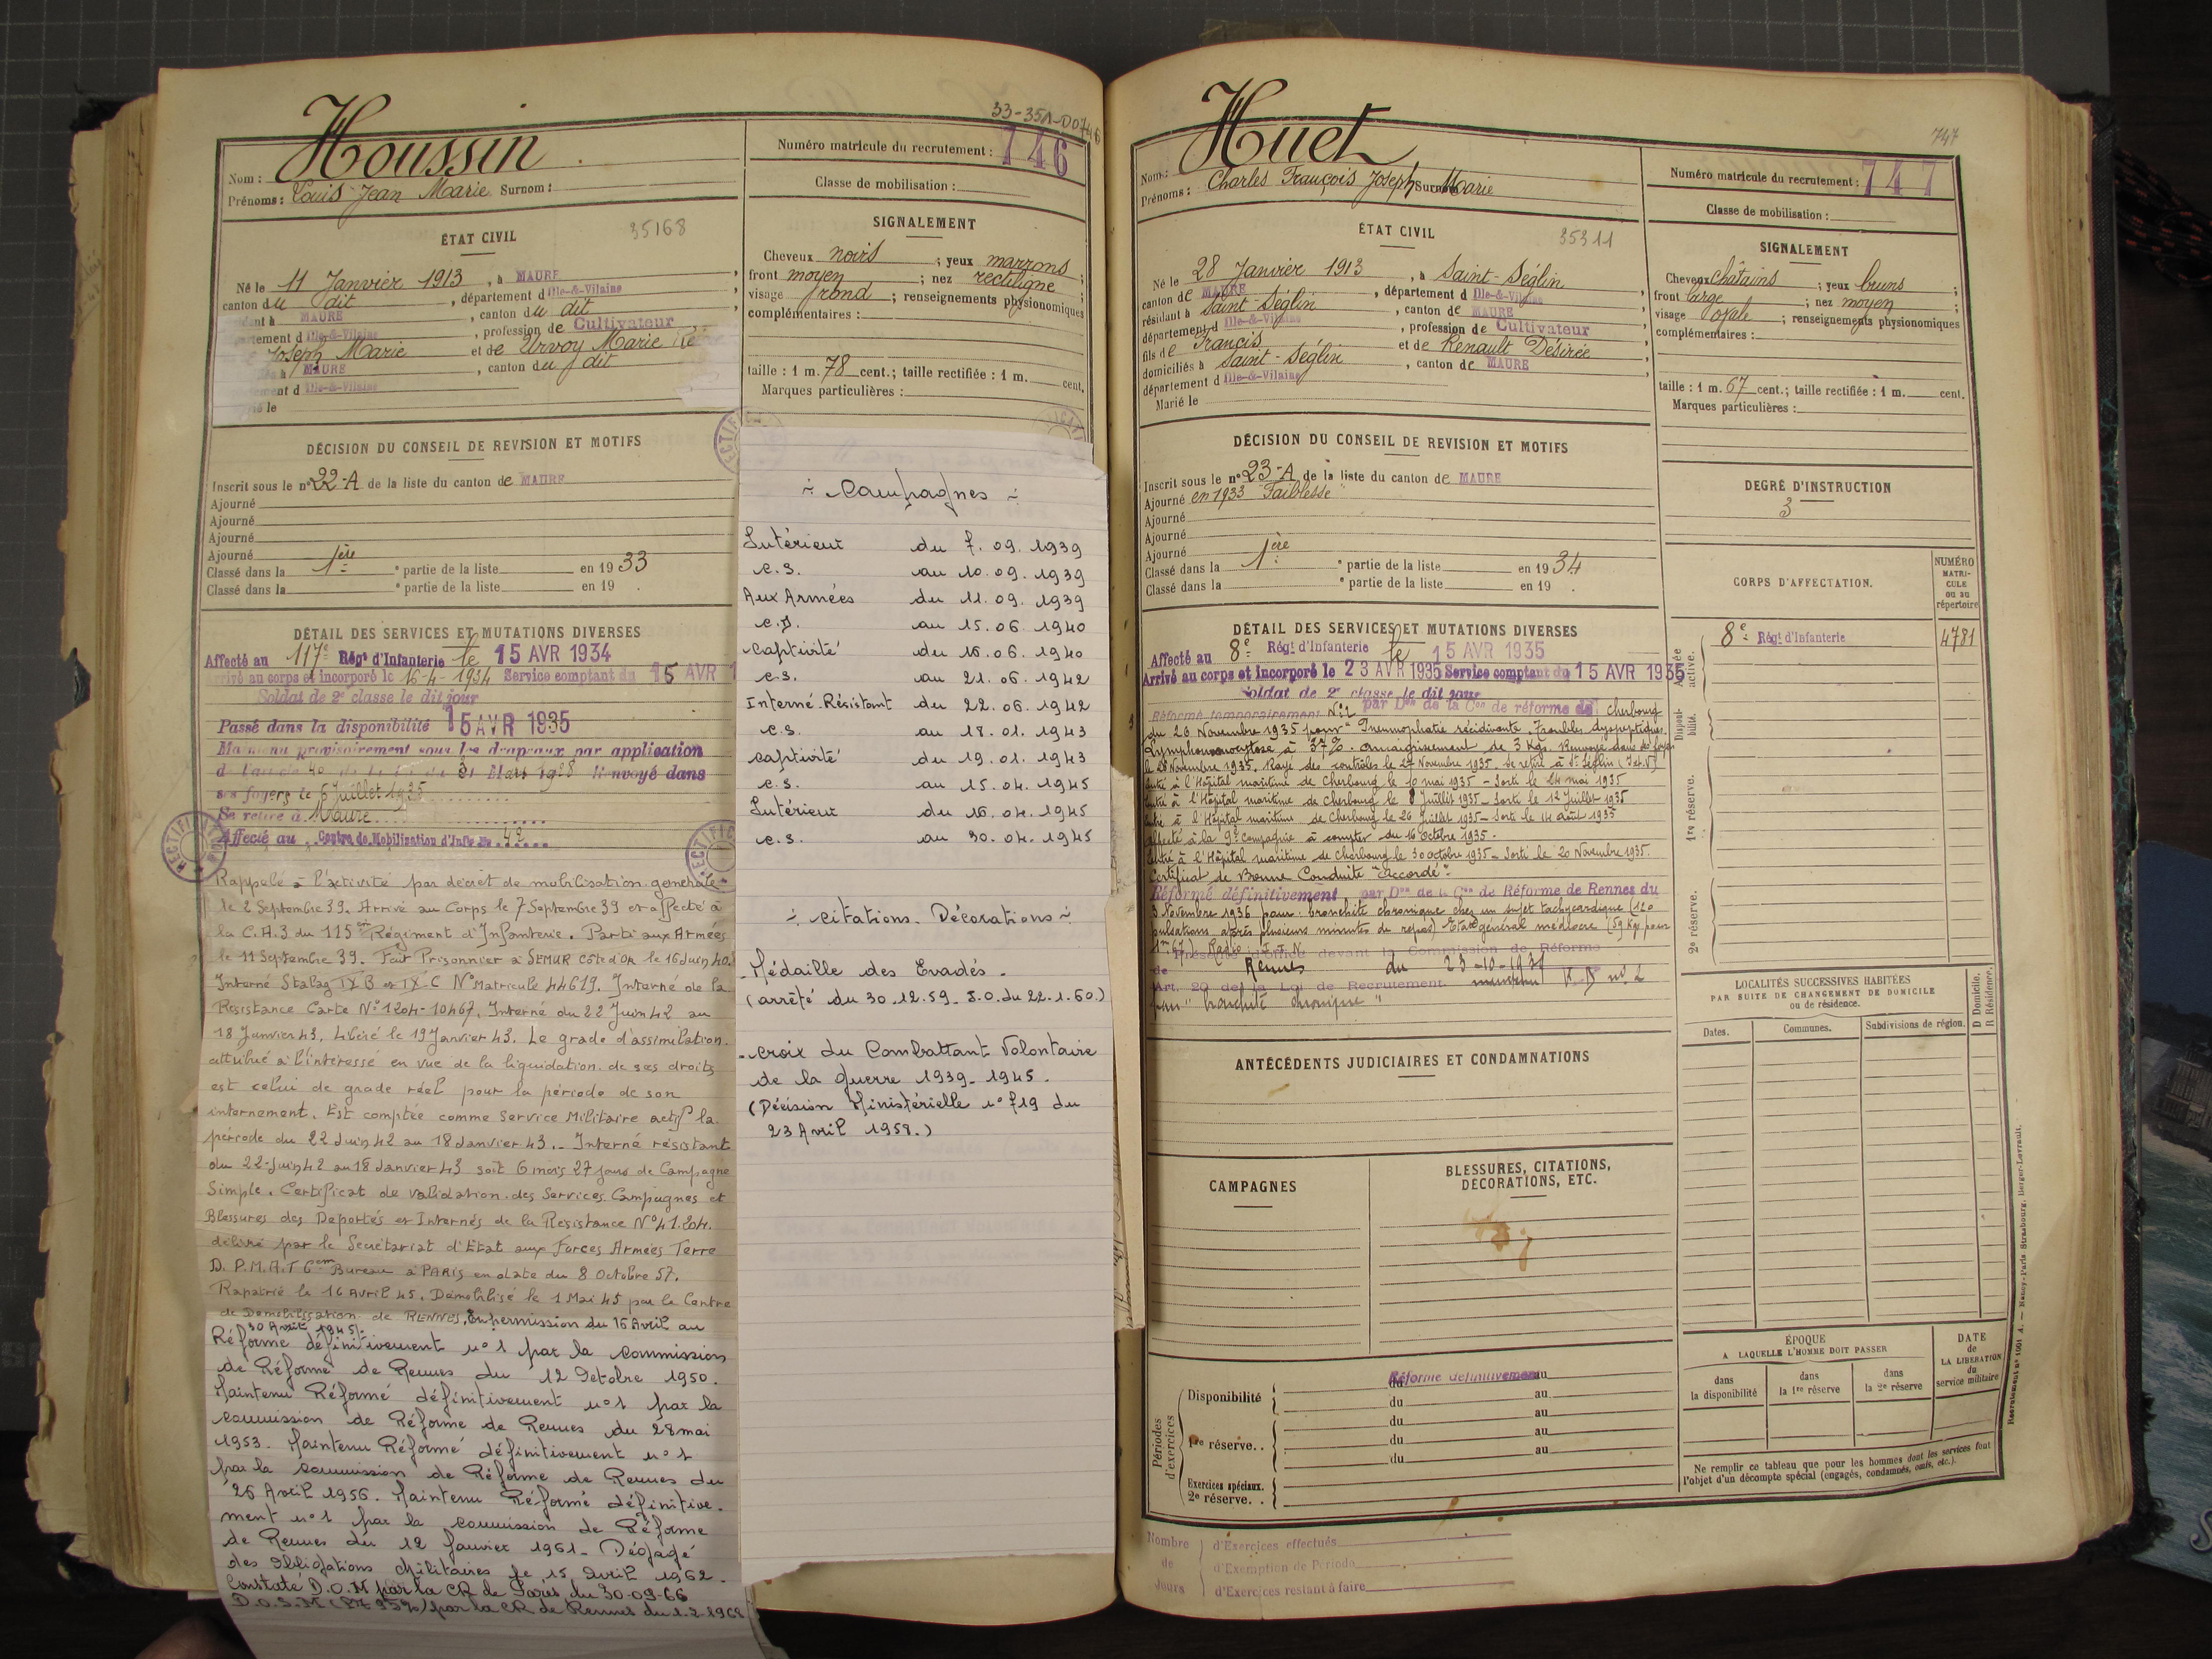 33-35A-D0746
Houssin
Nom :
Prénoms : Louis Jean Marie Surnom :
Numéro matricule du recrutement : 746
Classe de mobilisation :
ÉTAT CIVIL
35168
Né le 11 Janvier 1913, à MAURE,
canton du dit, département d Ille-&-Vilaine
MAURE, canton du dit,
Ille-&-Vilaine, profession de Cultivateur
Joseph Marie et de Urvoy Marie
MAURE, canton du dit
Ille-&-Vilaine
le
SIGNALEMENT
Cheveux noirs ; yeux marrons ;
front moyen ; nez rectiligne ;
visage rond ; renseignements physionomiques
complémentaires :
taille : 1 m. 78 cent.; taille rectifiée : 1 m. cent.
Marques particulières :
DÉCISION DU CONSEIL DE REVISION ET MOTIFS
Inscrit sous le n° 22-A de la liste du canton de MAURE
Ajourné
Ajourné
Ajourné
Ajourné
Classé dans la 1ère partie de la liste en 1933
Classé dans la partie de la liste en 19 .
DÉTAIL DES SERVICES ET MUTATIONS DIVERSES
Affecté au 117e Régt d'Infanterie le 15 AVR 1934
Arrivé au corps et incorporé le 16-4-1934 Service comptant du 15 AVR 1
Soldat de 2e classe le dit jour
Passé dans la disponibilité 15 AVR 1935
Maintenu provisoirement sous les drapeaux par application
31 Mars 1928 Renvoyé dans
ses foyers le 6 Juillet 1935
Se retire à Maure
Affecté au Centre de Mobilisation d'Infie No 42
Rappelé à l'activité par décret de mobilisation générale
le 2 Septembre 39. Arrivé au Corps le 7 Septembre 39 et affecté à
la C.A.3 du 115em Régiment d'Infanterie. Parti aux Armées
le 11 Septembre 39. Fait Prisonnier à SEMUR Côte d'OR le 16 Juin 40.
Interné Stalag IX B et IX-C N° Matricule 44619. Interné de la
Résistance Carte N° 1204-10467. Interné du 22 Juin 42 au
18 Janvier 43. Libéré le 19 Janvier 43. Le grade d'assimilation
attribué à l'intéressé en vue de la liquidation de ses droits
est celui de grade réel pour la période de son
internement. Est comptée comme Service Militaire actif la
période du 22 Juin 42 au 18 Janvier 43.- Interné résistant
du 22-Juin 42 au 18 Janvier 43 soit 6 mois 27 jours de Campagne
Simple. Certificat de validation des Services Campagnes et
Blessures des Déportés et Internés de la Résistance N° 41.204.
délivré par le Secrétariat d'Etat aux Forces Armées Terre
D.P.M.A.T 6em Bureau à PARIS en date du 8 Octobre 57.
Rapatrié le 16 Avril 45. Démobilisé le 1 Mai 45 par le Centre
de Démobilisation de RENNES. En permission du 16 Avril au
30 Avril 1945.
Réformé définitivement n° 1 par la commission
de Réforme de Rennes du 12 Octobre 1950.
Maintenu Réformé définitivement n° 1 par la
commission de Réforme de Rennes du 28 mai
1953. Maintenu Réformé définitivement n° 1
par la commission de Réforme de Rennes du
26 Avril 1956. Maintenu Réformé définitive-
ment n° 1 par la commission de Réforme
de Rennes du 12 Janvier 1961. Dégagé
des Obligations Militaires le 15 Avril 1962.
Constaté D.O.M par la CR de Paris du 30-09-66
par la CR de Rennes du 1.2.1968
- Campagnes -
Intérieur du 7.09.1939
c.s. au 10.09.1939
Aux Armées du 11.09.1939
c.D. au 15.06.1940
Captivité du 16.06.1940
c.s. au 21.06.1942
Interné-Résistant du 22.06.1942
c.s. au 18.01.1943
Captivité du 19.01.1943
c.s. au 15.04.1945
Intérieur du 16.04.1945
c.s. au 30.04.1945
- Citations. Décorations -
- Médaille des Evadés -
(arrêté du 30.12.59. J.O. du 22.1.60.)
- Croix du Combattant Volontaire
de la guerre 1939-1945.
(Décision Ministérielle n° 719 du
23 Avril 1958.)
747
Huet
Nom :
Prénoms : Charles François Joseph Surnom Marie
Numéro matricule du recrutement : 747
Classe de mobilisation :
ÉTAT CIVIL
35311
Né le 28 Janvier 1913, à Saint-Séglin,
canton de MAURE, département d Ille-&-Vilaine
résidant à Saint-Séglin, canton de MAURE,
département d Ille-&-Vilaine, profession de Cultivateur
fils de Francis et de Renault Désirée
domiciliés à Saint-Séglin, canton de MAURE,
département d Ille-&-Vilaine
Marié le
SIGNALEMENT
Cheveux châtains ; yeux bruns ;
front large ; nez moyen ;
visage ovale ; renseignements physionomiques
complémentaires :
taille : 1 m. 67 cent.; taille rectifiée : 1 m. cent.
Marques particulières :
DÉCISION DU CONSEIL DE REVISION ET MOTIFS
Inscrit sous le n° 23-A de la liste du canton de MAURE
Ajourné en 1933 "Faiblesse"
Ajourné
Ajourné
Ajourné
Classé dans la 1ère partie de la liste en 1934
Classé dans la partie de la liste en 19 .
DEGRÉ D'INSTRUCTION
3
CORPS D'AFFECTATION.
NUMÉRO MATRI-CULE ou au répertoire
Armée active.
8e Régt d'Infanterie 4781
Disponibilité.
1re réserve.
2e réserve.
DÉTAIL DES SERVICES ET MUTATIONS DIVERSES
Affecté au 8e Régt d'Infanterie le 15 AVR 1935
Arrivé au corps et incorporé le 23 AVR 1935 Service comptant du 15 AVR 1935
Soldat de 2e classe le dit jour
Réformé temporairement N°1 par Don de la Con de réforme de Cherbourg
du 26 Novembre 1935 pour " récidivante. Troubles dyspeptiques.
à 37%. amaigrissement de 3 Kgs. Renvoyé dans ses foyers
le 26 Novembre 1935. Rayé des contrôles le 27 Novembre 1935. Se retire à St Séglin (I.et.V)
Entré à l'Hôpital maritime de Cherbourg le 10 mai 1935 - Sorti le 24 mai 1935
Entré à l'Hôpital maritime de Cherbourg le 8 Juillet 1935 - Sorti le 12 Juillet 1935
Entré à l'Hôpital maritime de Cherbourg le 26 Juillet 1935 - Sorti le 14 août 1935
Affecté à la 9e Compagnie à compter du 16 Octobre 1935.
Entré à l'Hôpital maritime de Cherbourg le 30 octobre 1935 - Sorti le 20 Novembre 1935.
Certificat de Bonne Conduite "Accordé"
Réformé définitivement par Don de la Con de Réforme de Rennes du
3 Novembre 1936 pour : bronchite chronique chez un sujet tachycardique (120
pulsations après plusieurs minutes de repos) Etat général médiocre (59 Kgs pour
1m67). Radio : I.T.N.
Présenté d'office devant la Commission de Réforme
de Rennes du
Art. 20 de la Loi de Recrutement n° 2
pour "bronchite chronique"
ANTÉCÉDENTS JUDICIAIRES ET CONDAMNATIONS
CAMPAGNES
BLESSURES, CITATIONS,
DÉCORATIONS, ETC.
LOCALITÉS SUCCESSIVES HABITÉES
PAR SUITE DE CHANGEMENT DE DOMICILE
ou de résidence.
Dates. Communes. Subdivisions de région. D Domicile. R Résidence.
Périodes d'exercices
Réformé définitivement
Disponibilité du au
du au
du au
1re réserve.. du au
du au
Exercices spéciaux.
2e réserve. .
ÉPOQUE
A LAQUELLE L'HOMME DOIT PASSER
dans la disponibilité
dans la 1re réserve
dans la 2e réserve
DATE de LA LIBÉRATION du service militaire
Ne remplir ce tableau que pour les hommes dont les services font
l'objet d'un décompte spécial (engagés, condamnés, omis, etc.).
Nombre de Jours
d'Exercices effectués
d'Exemption de Période
d'Exercices restant à faire
Nancy-Paris-Strasbourg, Berger-Levrault.